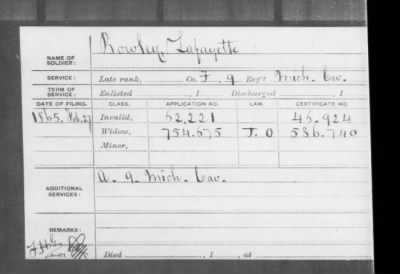 NAME OF SOLDIER: Rowley, Lafayette
SERVICE: Late rank, Co. F. 9 Reg't Mich. Cav.
TERM OF SERVICE: Enlisted , 1 Discharged , 1
DATE OF FILING. CLASS. APPLICATION NO. LAW CERTIFICATE NO.
1865, Feb. 27 Invalid, 62.221 46.924
Widow, 754.675 J. O 536.740
Minor,
ADDITIONAL SERVICES: A. 9. Mich. Cav.
REMARKS:
Died , 1 , at